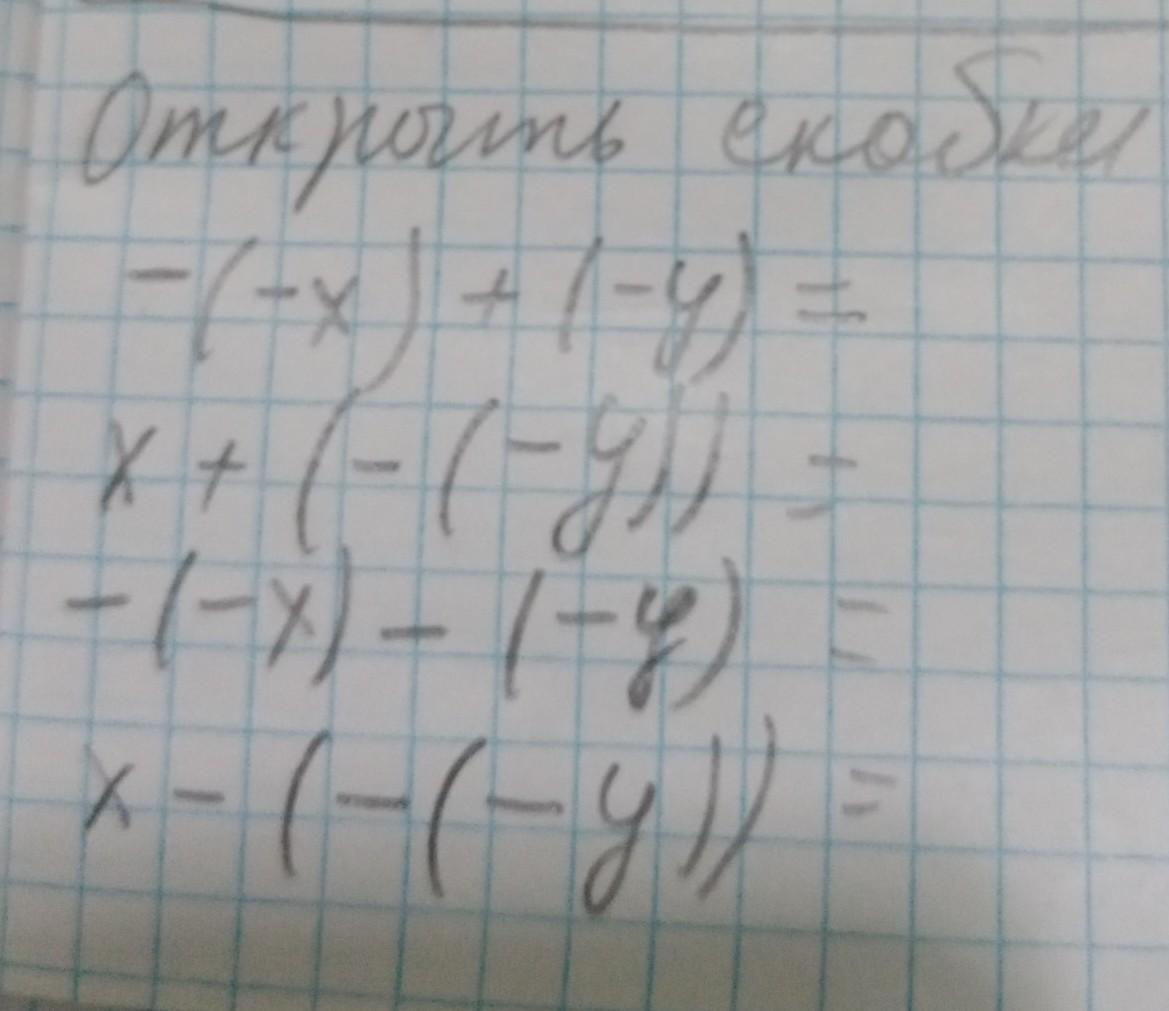 Открыть скобки
-(-x) + (-y) =
x + (-(-y)) =
-(-x) - (-y) =
x - (-(-y)) =